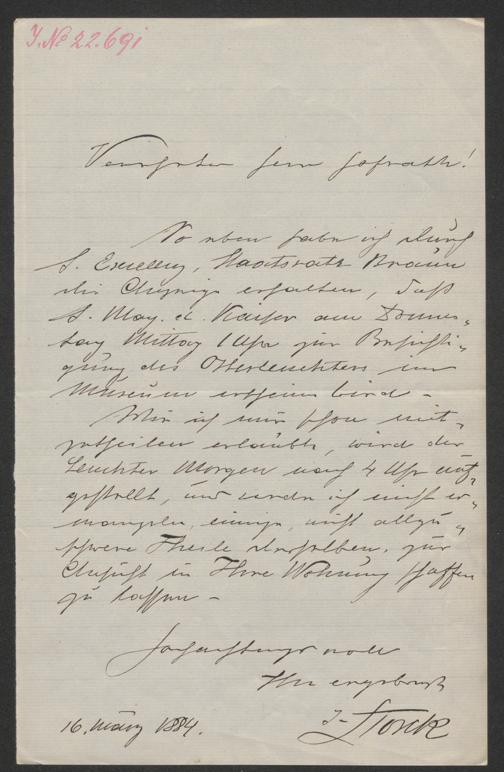 I. No 22.691
Verehrter Herr Hofrath!
So eben habe ich durch
S. Excellenz, Staatsrath Braun
die Anzeige erhalten, daß
S. May. d. Kaiser am Donners„
tag Mittag 1 Uhr zur Besichti„
gung des Osterleuchters im
Museum erscheinen wird –
Wie ich mir schon mit„
zutheilen erlaubte, wird der
Leuchter Morgen nach 4 Uhr auf„
gestellt, und werde ich nicht er„
mangeln, einige, nicht allzu„
schwere Theile desselben, zur
Ansicht in Ihre Wohnung schaffen
zu lassen –
Hochachtungsvoll
Ihr ergebenster
J. Storck
16. März 1884.